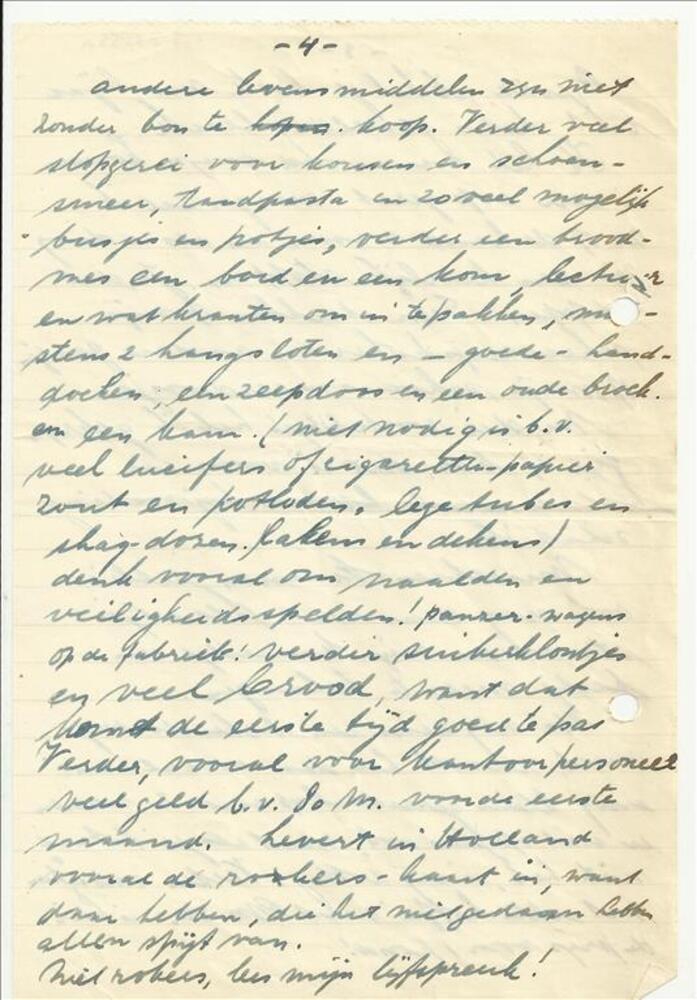 - 4 -
andere levensmiddelen zijn niet
zonder bon te kopen. koop. Verder veel
stopgerei voor kousen en schoen-
smeer, tandpasta en zoveel mogelijk
busjes en potjes, verder een brood-
mes een bord en een kom, lectuur
en wat kranten om in te pakken, min-
stens 2 hangsloten en - goede - hand-
doeken, een zeepdoos en een oude broek.
en een kam. (niet nodig is b.v.
veel lucifers of cigaretten-papier
zout en potloden, lege tubes en
shag-dozen. (lakens en dekens)
denk vooral om naalden en
veiligheidsspelden! panzer-wagens
op de fabriek! verder suikerklontjes
en veel brood, want dat
komt de eerste tijd goed te pas
Verder, vooral voor kantoorpersoneel
veel geld b.v. 80 M. voor de eerste
maand. Levert in Holland
vooral de rokers-kaart in, want
daar hebben, die het niet gedaan hebben
allen spijt van.
Niet rokers, lees mijn lijfspreuk!